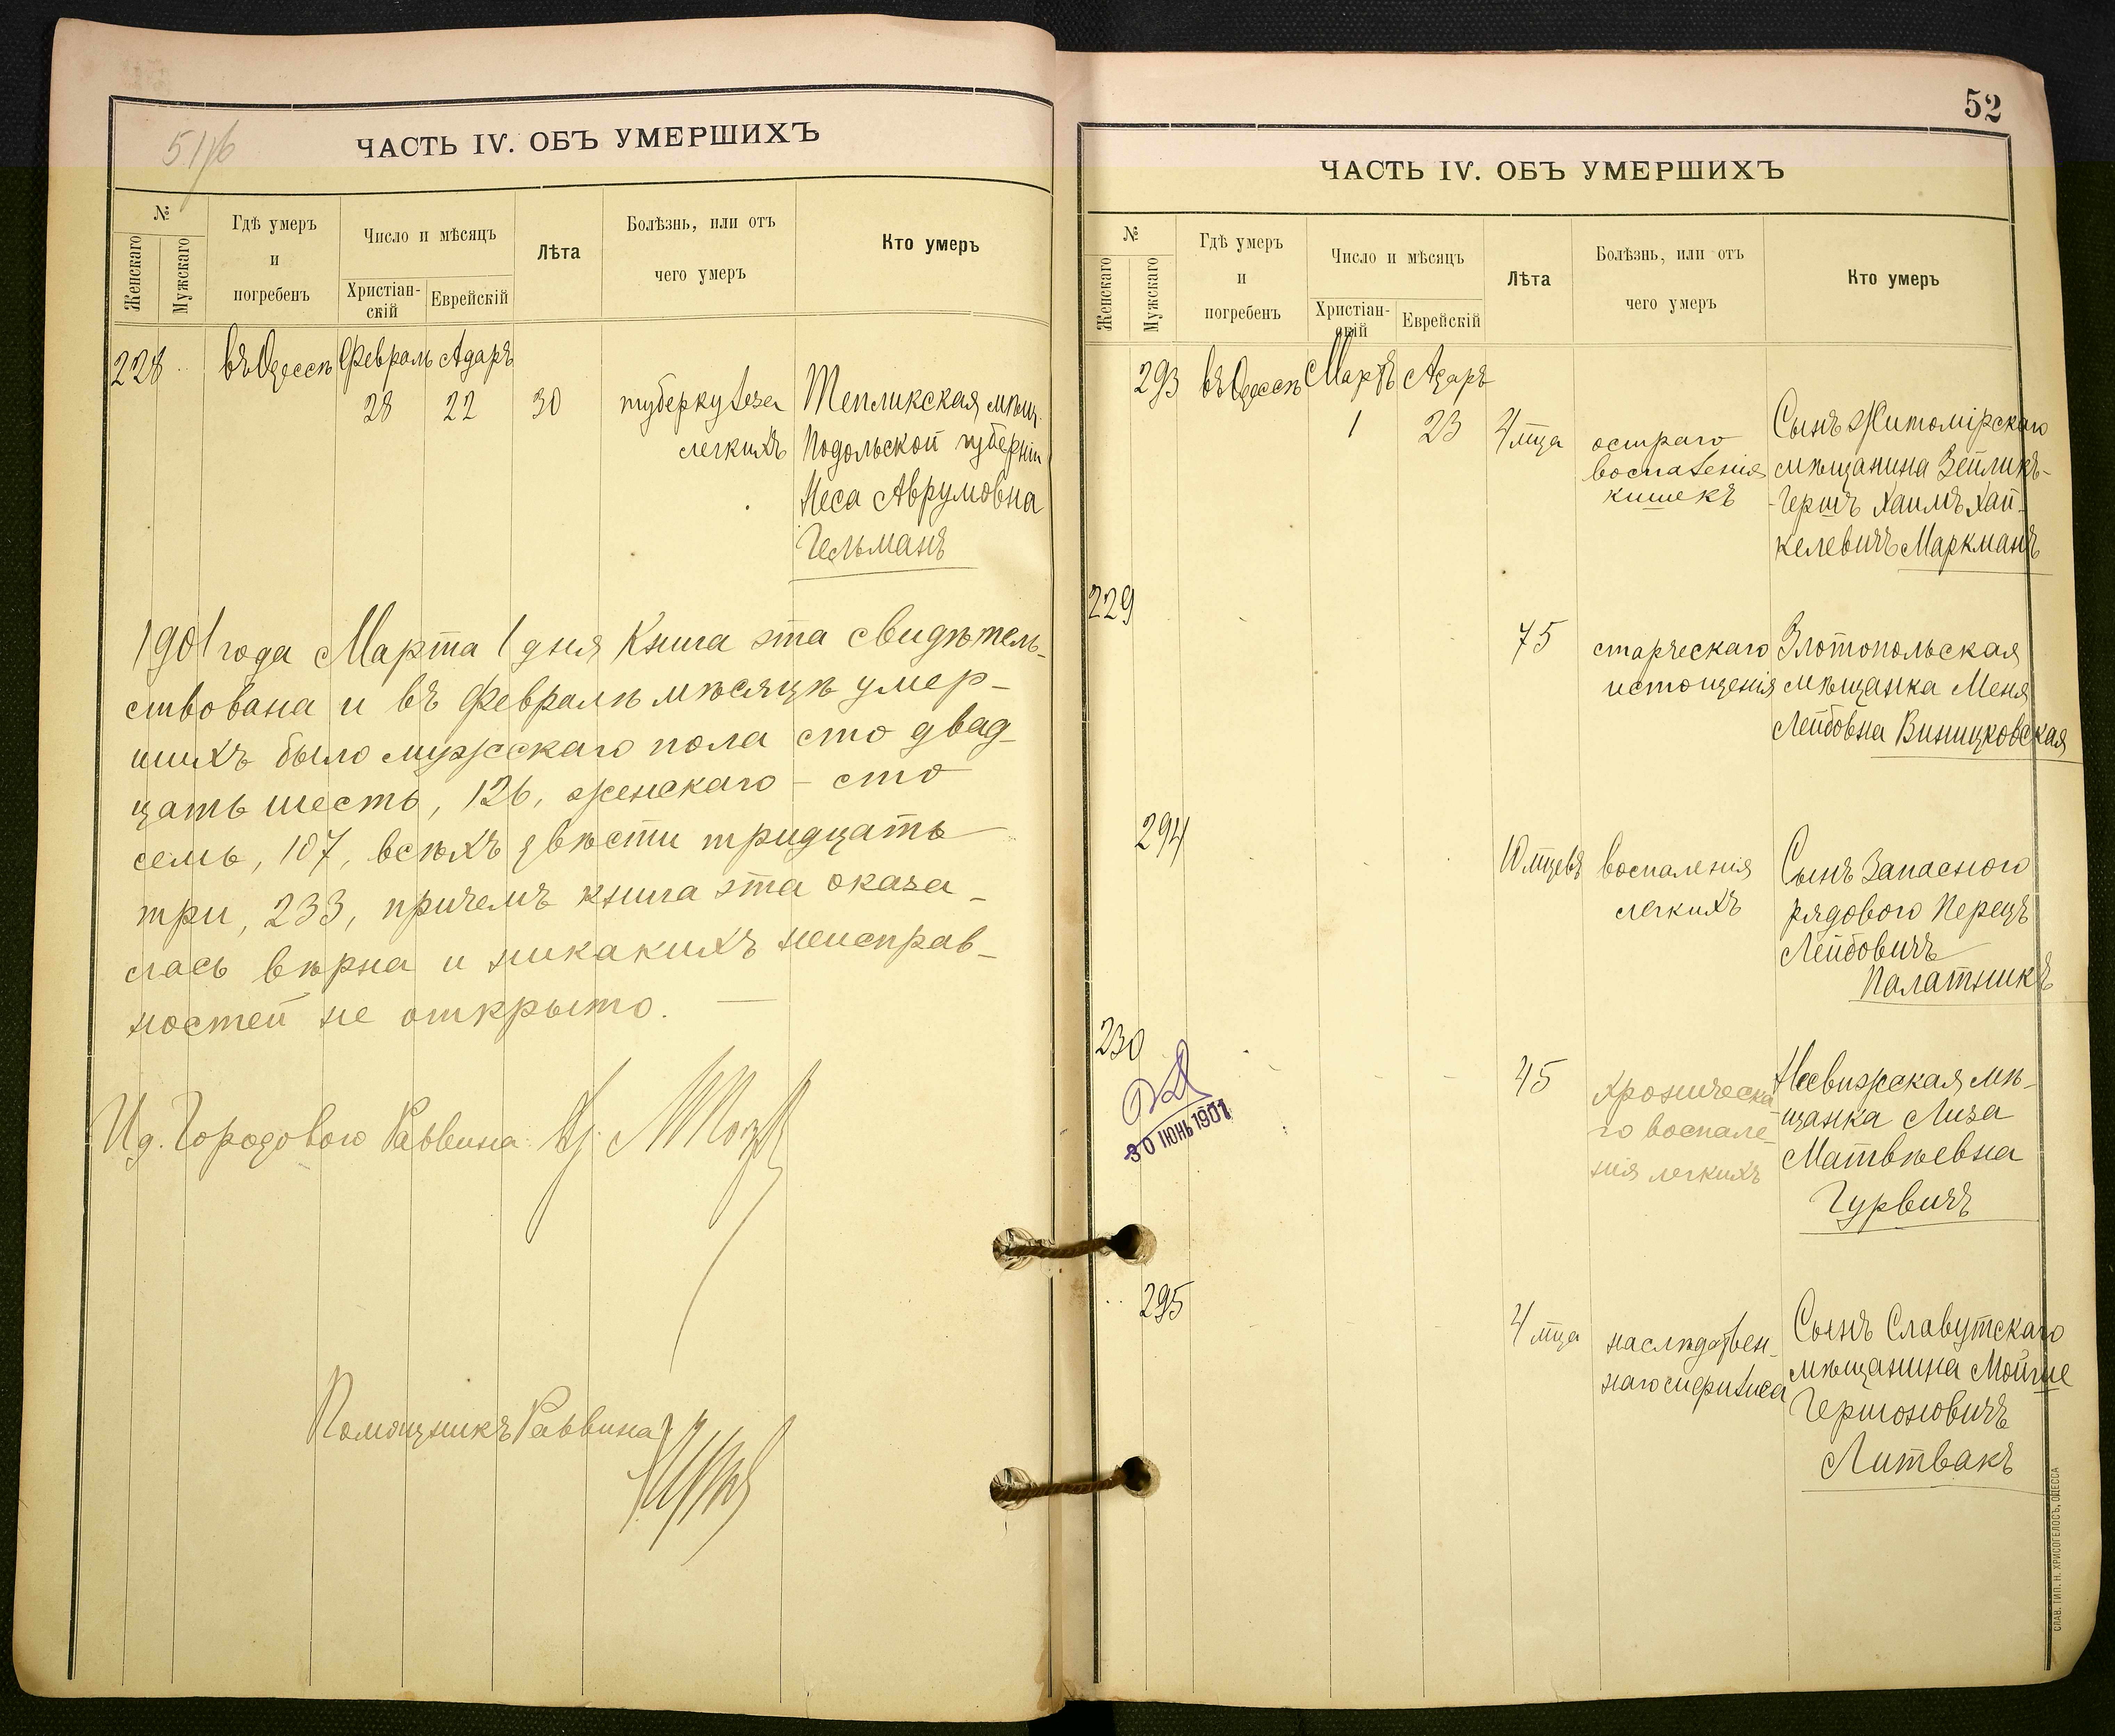 51/16
ЧАСТЬ IV. ОБЪ УМЕРШИХЪ
№
Женскаго
Мужскаго
Гдѣ умеръ
и
погребенъ
Число и мѣсяцъ
Христіан-
скій
Еврейскій
Лѣта
Болѣзнь, или отъ
чего умеръ
Кто умеръ
228
въ Одессѣ
Февраль
Адаръ
28
22
30
туберкулеза
легкихъ
Тепликская мѣщ.
Подольской губерніи
Неса Аврумовна
Гельманъ
1901 года Марта 1 дня Книга эта свидѣтель-
ствована и въ Февралѣ мѣсяцѣ умер-
шихъ было мужскаго пола сто двад-
цать шесть, 126, женскаго - сто
семь, 107, всѣхъ двѣсти тридцать
три, 233, причемъ книга эта оказа-
лась вѣрна и никакихъ неисправ-
ностей не открыто.
И д. Городового Раввина
Помощникъ Раввина
52
ЧАСТЬ IV. ОБЪ УМЕРШИХЪ
№
Женскаго
Мужскаго
Гдѣ умеръ
и
погребенъ
Число и мѣсяцъ
Христіан-
скій
Еврейскій
Лѣта
Болѣзнь, или отъ
чего умеръ
Кто умеръ
293
въ Одессѣ
Мартъ
Адаръ
1
23
4 мца
остраго
воспаленія
кишекъ
Сынъ Житомірскаго
мѣщанина Зейликъ-
-Гершъ Хаимъ Хай-
келевичъ Маркманъ
229
75
старческаго
истощенія
Злотопольская
мѣщанка Меня
Лейбовна Виницковская
294
10 мцевъ
воспаленія
легкихъ
Сынъ Запасного
рядового Перецъ
Лейбовичъ
Палатникъ
230
30 ІЮНЬ 1901
45
хроническа-
го воспале-
нія легкихъ
Несвижская мѣ-
щанка Лиза
Матвѣевна
Гурвичъ
295
4 мца
наслѣдствен-
наго сифилиса
Сынъ Славутскаго
мѣщанина Мойше
Гершоновичъ
Литвакъ
СЛАВ. ТИП. Н. ХРИСОГЕЛОСЪ, ОДЕССА